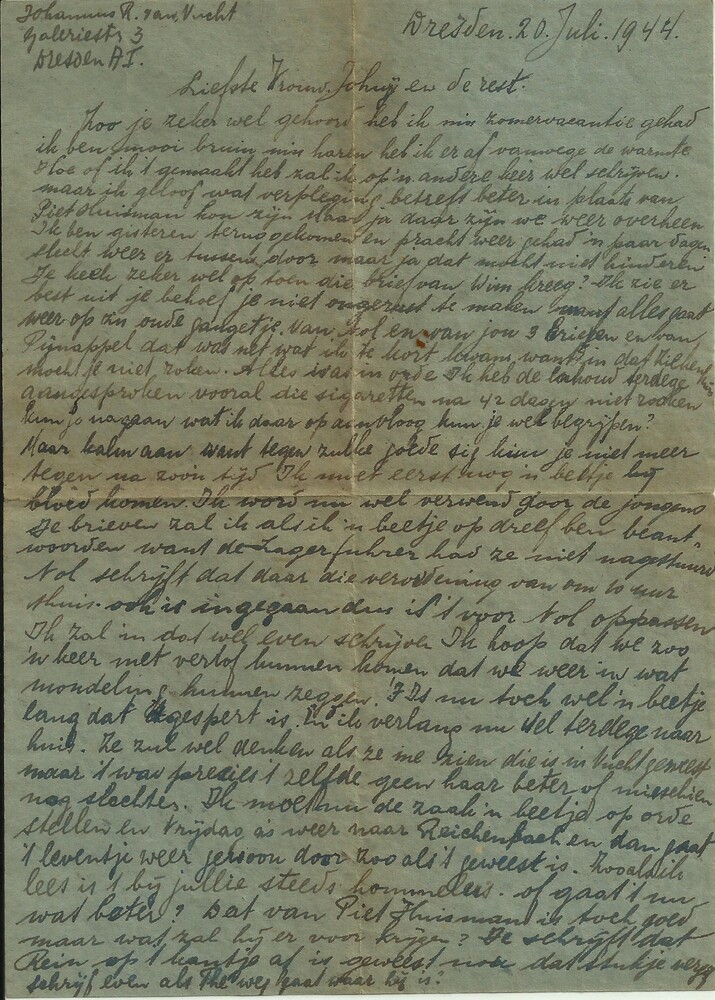 Johannus R. van Vucht
Galeriestr 3
Dresden A I.
Dresden. 20 Juli. 1944.
Liefste Vrouw. Johny en de rest.
Zoo je zeker wel gehoord heb ik mijn zomervacantie gehad
ik ben mooi bruin mijn haren heb ik er af vanwege de warmte
Hoe of ik 't gemaakt heb zal ik op 'n andere keer wel schrijven.
maar ik geloof wat verpleging betreft beter in plaats van
Piet Huisman kon zijn maar ja daar zijn we weer overheen
Ik ben gisteren teruggekomen en pracht weer gehad 'n paar dagen
slecht weer er tussen door maar ja dat mocht niet hinderen
Je keek zeker wel op toen die brief van Wim kreeg? Ik zie er
best uit je behoef je niet ongerust te maken want alles gaat
weer op zn oude gangetje. Van Nol en van jou 3 brieven en van
Pijnappel dat was net wat ik te kort kwam, want in dat ziekenhuis
mocht je niet roken. Alles was in orde Ik heb de inhoud terdege
aangesproken vooral die sigaretten na 42 dagen niet rooken
kun je nagaan wat ik daar op aanvloog kun je wel begrijpen?
Maar kalm aan want tegen zulke goede sig kun je niet meer
tegen na zoo'n tijd Ik moet eerst nog 'n beetje bij
bloed komen. Ik word nu wel verwend door de jongens
Je brieven zal ik als ik 'n beetje op dreef ben beant-
woorden want de Lagerführer had ze niet nagestuurd
Nol schrijft dat daar die verordening van om 10 uur
thuis ook is ingegaan dus is 't voor Nol oppassen
Ik zal 'm dat wel even schrijven Ik hoop dat we zoo
'n keer met verlof kunnen komen dat we weer in wat
mondeling kunnen zeggen. 't Is nu toch wel 'n beetje
lang dat 't gespert is. En ik verlang nu wel terdege naar
huis. Ze zul wel denken als ze me zien die is in Vucht geweest
maar 't was precies 't zelfde geen haar beter of misschien
nog slechter. Ik moet nu de zaak 'n beetje op orde
stellen en Vrijdag as weer naar Reichenbach en dan gaat
't leventje weer gewoon door zoo als 't geweest is. Zooals ik
lees is 't bij jullie steeds hommeles. of gaat 't nu
wat beter? Dat van Piet Huisman is toch goed
maar wat zal hij er voor krijgen? Je schrijft dat
Rein op 't kantje af is geweest nou dat stukje
schrijf even als The weg gaat waar hij is.